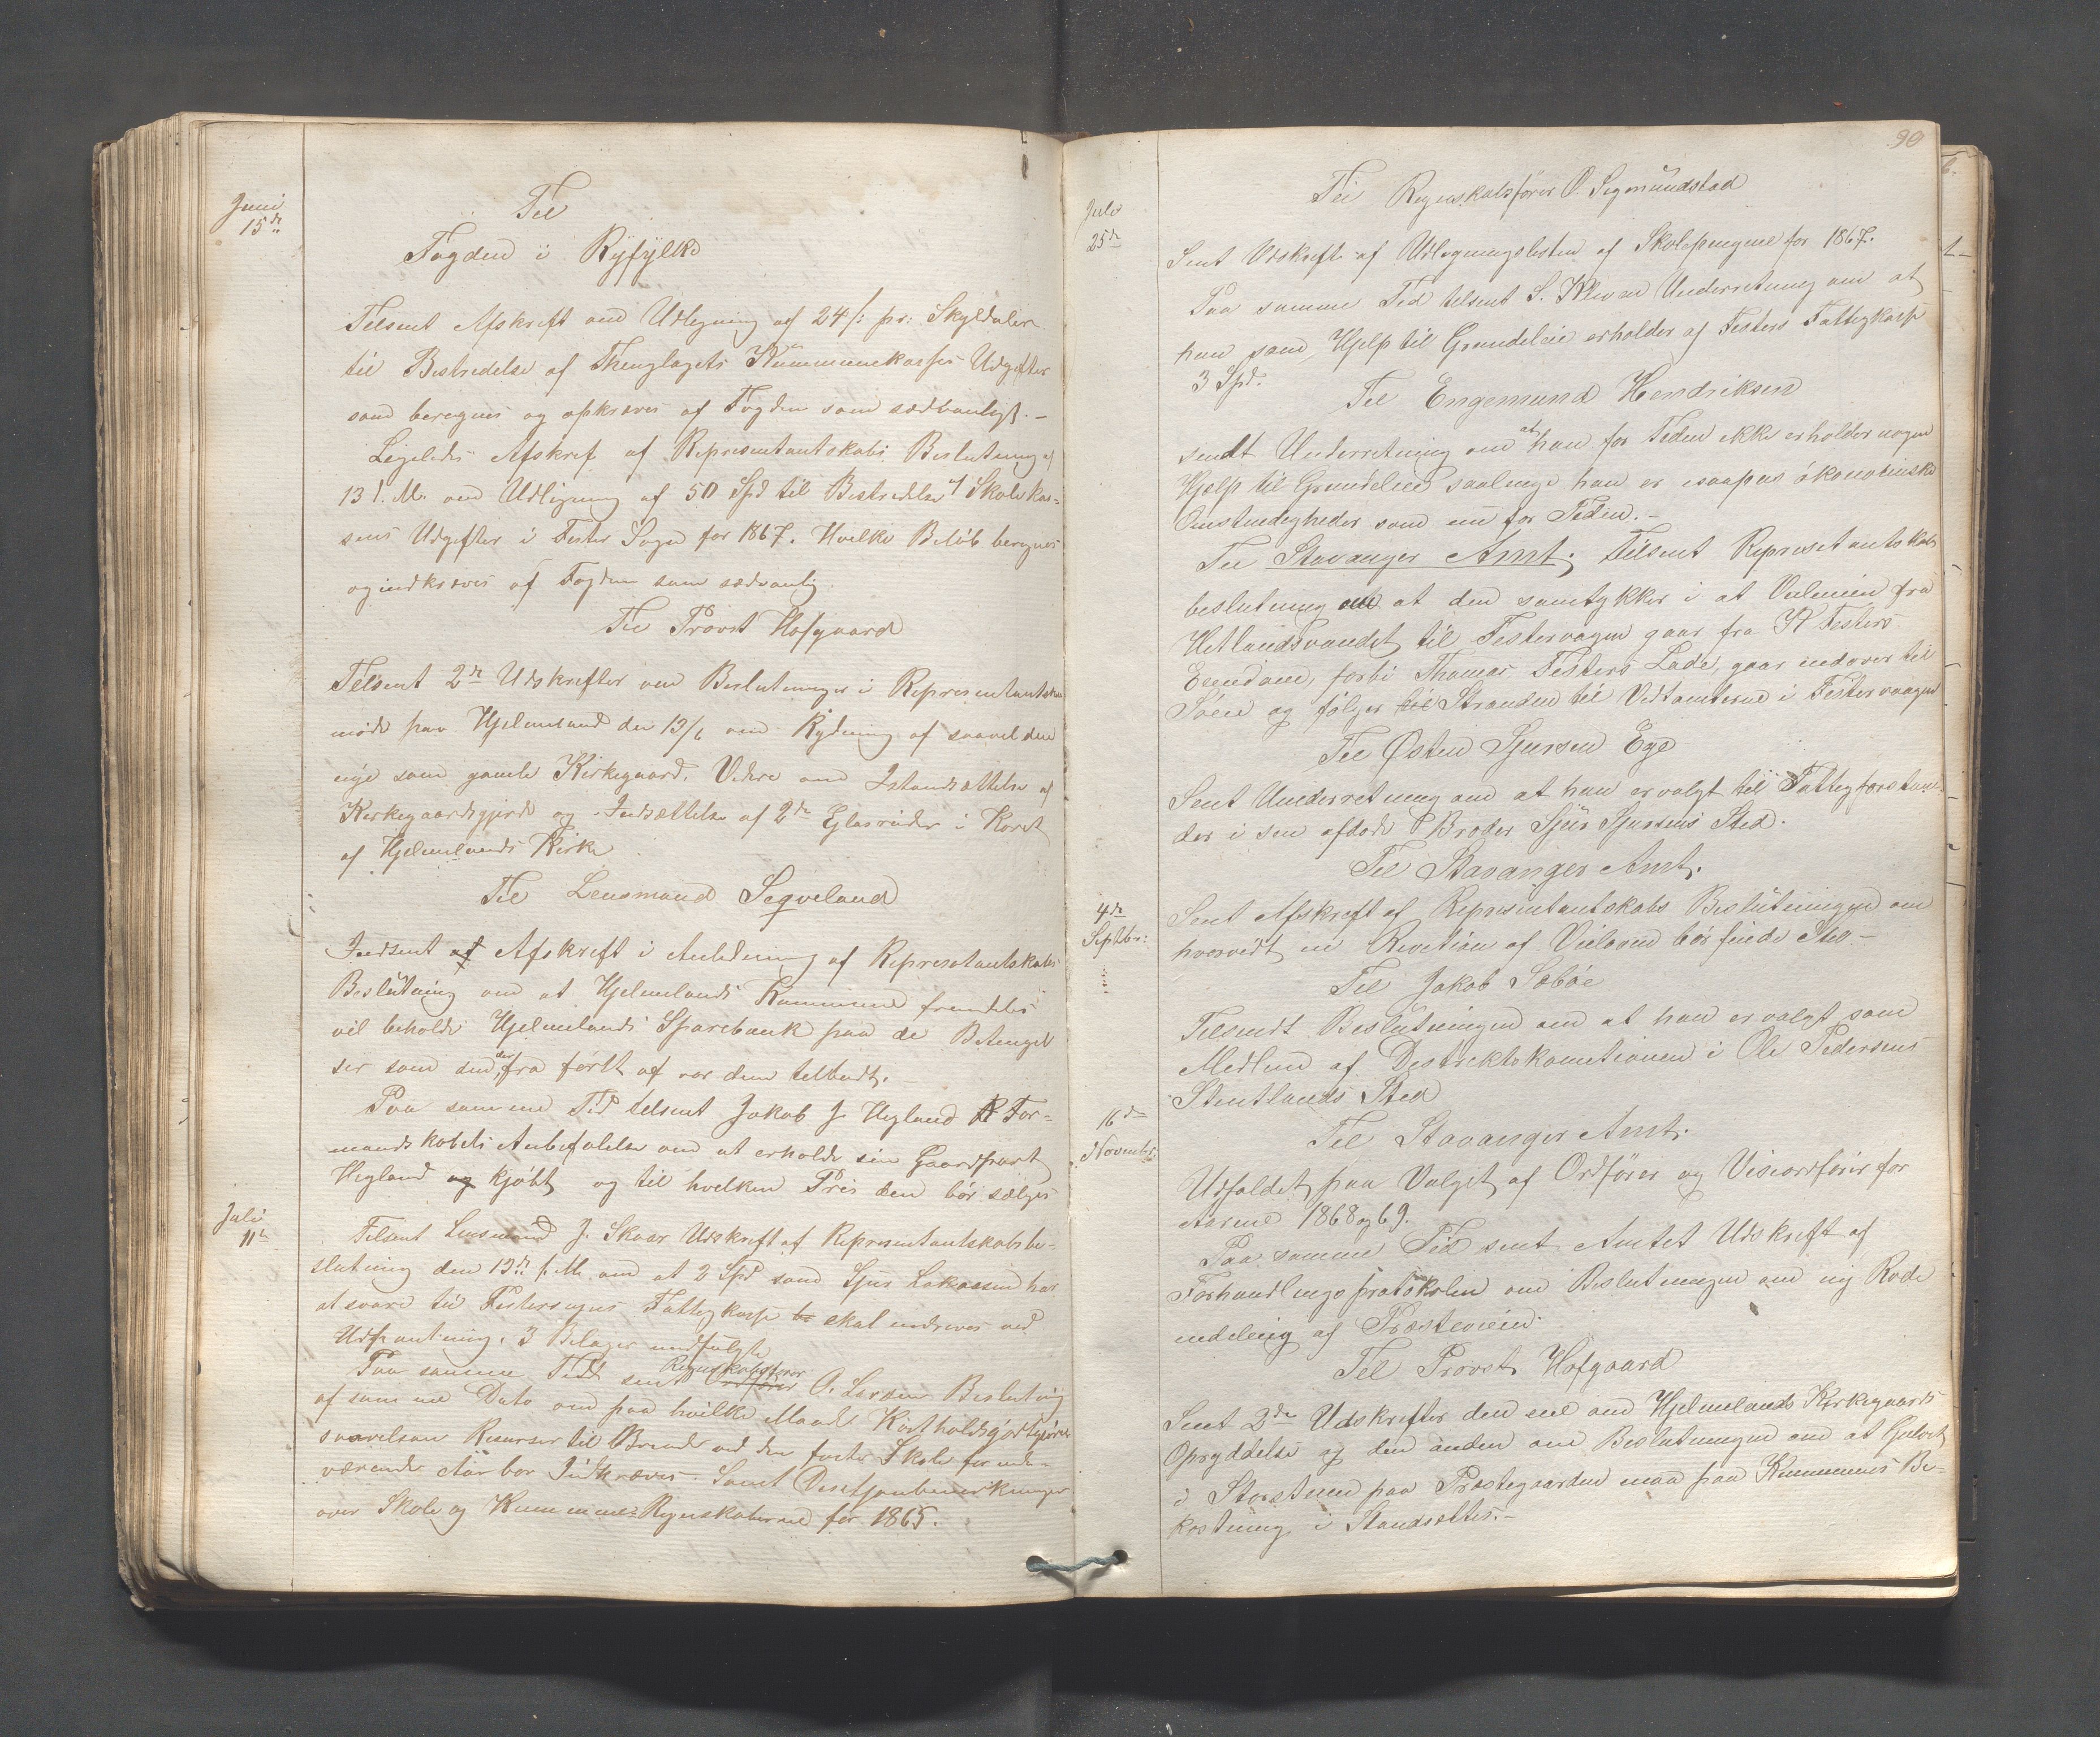 Juni
15de
Til
Fogden i Ryfylke
Tilsent Afskrift om Udligning af 24 s: pr: Skyldaler
til Bestridelse af Thinglagets Kummunekasses Udgifter
som beregnes og opkræves af Fogden som sædvanligt. –
Ligeledes Afskref af Representantskabs Beslutning af
13 d. M. om Udligning af 50 Spd til Bestridelse af Skolekas=
sens Udgifter i Fister Sogn for 1867. Hvelke Beløb beregnes
og indkræves af Fogden som sædvanlig
Til Provst Hofgaard
Tilsent 2de Udskrifter om Beslutninger i Representantska
møde paa Hjelmeland den 13/6 om Rydning af saavel den
nye som gamle Kirkegaard. Videre om Istandsættelse af
Kirkegaardsgjerde og Indsættelse af 2de Glasruder i Koret
af Hjelmelands Kirke
Til Lensmand Seqveland
Indsent af Afskrift i Anledning af Represetantskabs
Beslutning om at Hjelmelands Kommune fremdeles
vil beholde Hjelmelands Sparebank paa de Betingel
ser som den der fra først af var dem telbudt. –
Paa samme Tid telsent Jakob J. Hegland R For=
mandskabets Anbefalelse om at erholde sin Gaardpart
Hegland og kjøbt og til hvelken Pris den bør sælges
Juli
11te
Tilsent Lensmand J. Skaar Udskreft af Representantskabsbe=
slutning den 13de f. M. om at 2 Spd som Sjur Lakassen har
at svare til Fistersogns Fattegkasse be skal inndreves ved
Udpantning. 3 Belager medfulgte
Paa samme Tid sent Ordfører Regnskabsfører O. Larsen Beslutnig
af samme Dato om paa hvilke Maade Kostholdsgodtgjørelse
saavelsom Resurser til Brende ved den faste Skole for inde=
værende Aar bør Indkræves. Samt Desitsonbemerkninger
over Skole og Kummune=Regnskaberne for 1865.
90
Juli
25de
Til Regnskabsfører O. Segmundstad
Sent Udskreft af Udlegningslesten af Skolepengene for 1867.
Paa samme Ted telsent S. Kleven Underretning om at
han som Hjelp til Grundeleie erholder af Festers Fattegkasse
3 Spd.
Til Engemund Hendriksen
sendt Underretning om at han for Teden ikke erholder nogen
Hjelp til Grundeleie saalenge han er isaapas økonomiske
Omstendegheder som nu for Teden. –
Til Stavanger Amt. Tilsent Represetantskabs
beslutning om at den samtykker i at Veilinien fra
Hetlandsvandet til Festervagen gaar fra K Festers
Eiendom, forbi Thomas Festers Lade, gaar indover til
Søien og følger til Stranden til Vedtomterne i Festervaagen
Til Østen Sjursen Ege
Sent Underretning om at han er valgt til Fattegforstan=
der i sen afdøde Broder Sjur Sjursens Sted.
4de
Septbr:
Til Stavanger Amt.
Sent Afskreft af Representantskabs Beslutningen om
hvorvedt en Revition af Veiloven bør finde Sted –
Til Jakob Sæbøe
Telsendt Beslutningen om at han er valgt som
Medlem af Destriktskometionen i Ole Pedersens
Stentlands Sted
16de
Novembr:
Til Stavanger Amt.
Udfaldet paa Valget af Ordfører og Viseordfører for
Aarene 1868 og 69.
Paa samme Tid sent Amtet Udskreft af
Forhandlingsprotokolen om Beslutningen om ny Rode
inddeling af Præsteveien.
Til Provst Hofgaard
Sent 2de Udskrefter den ene om Hjelmelands Kirkegaards
Opryddelse og den anden om Beslutningen om at Gulvet
i Storstuen paa Præstegaarden maa paa Kummunens Be=
kostning i Standsættes. –